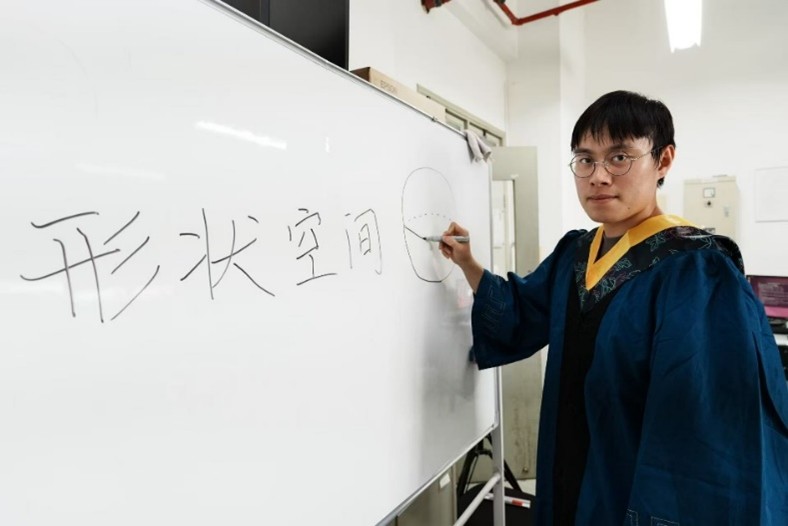 形状空间
EPSON